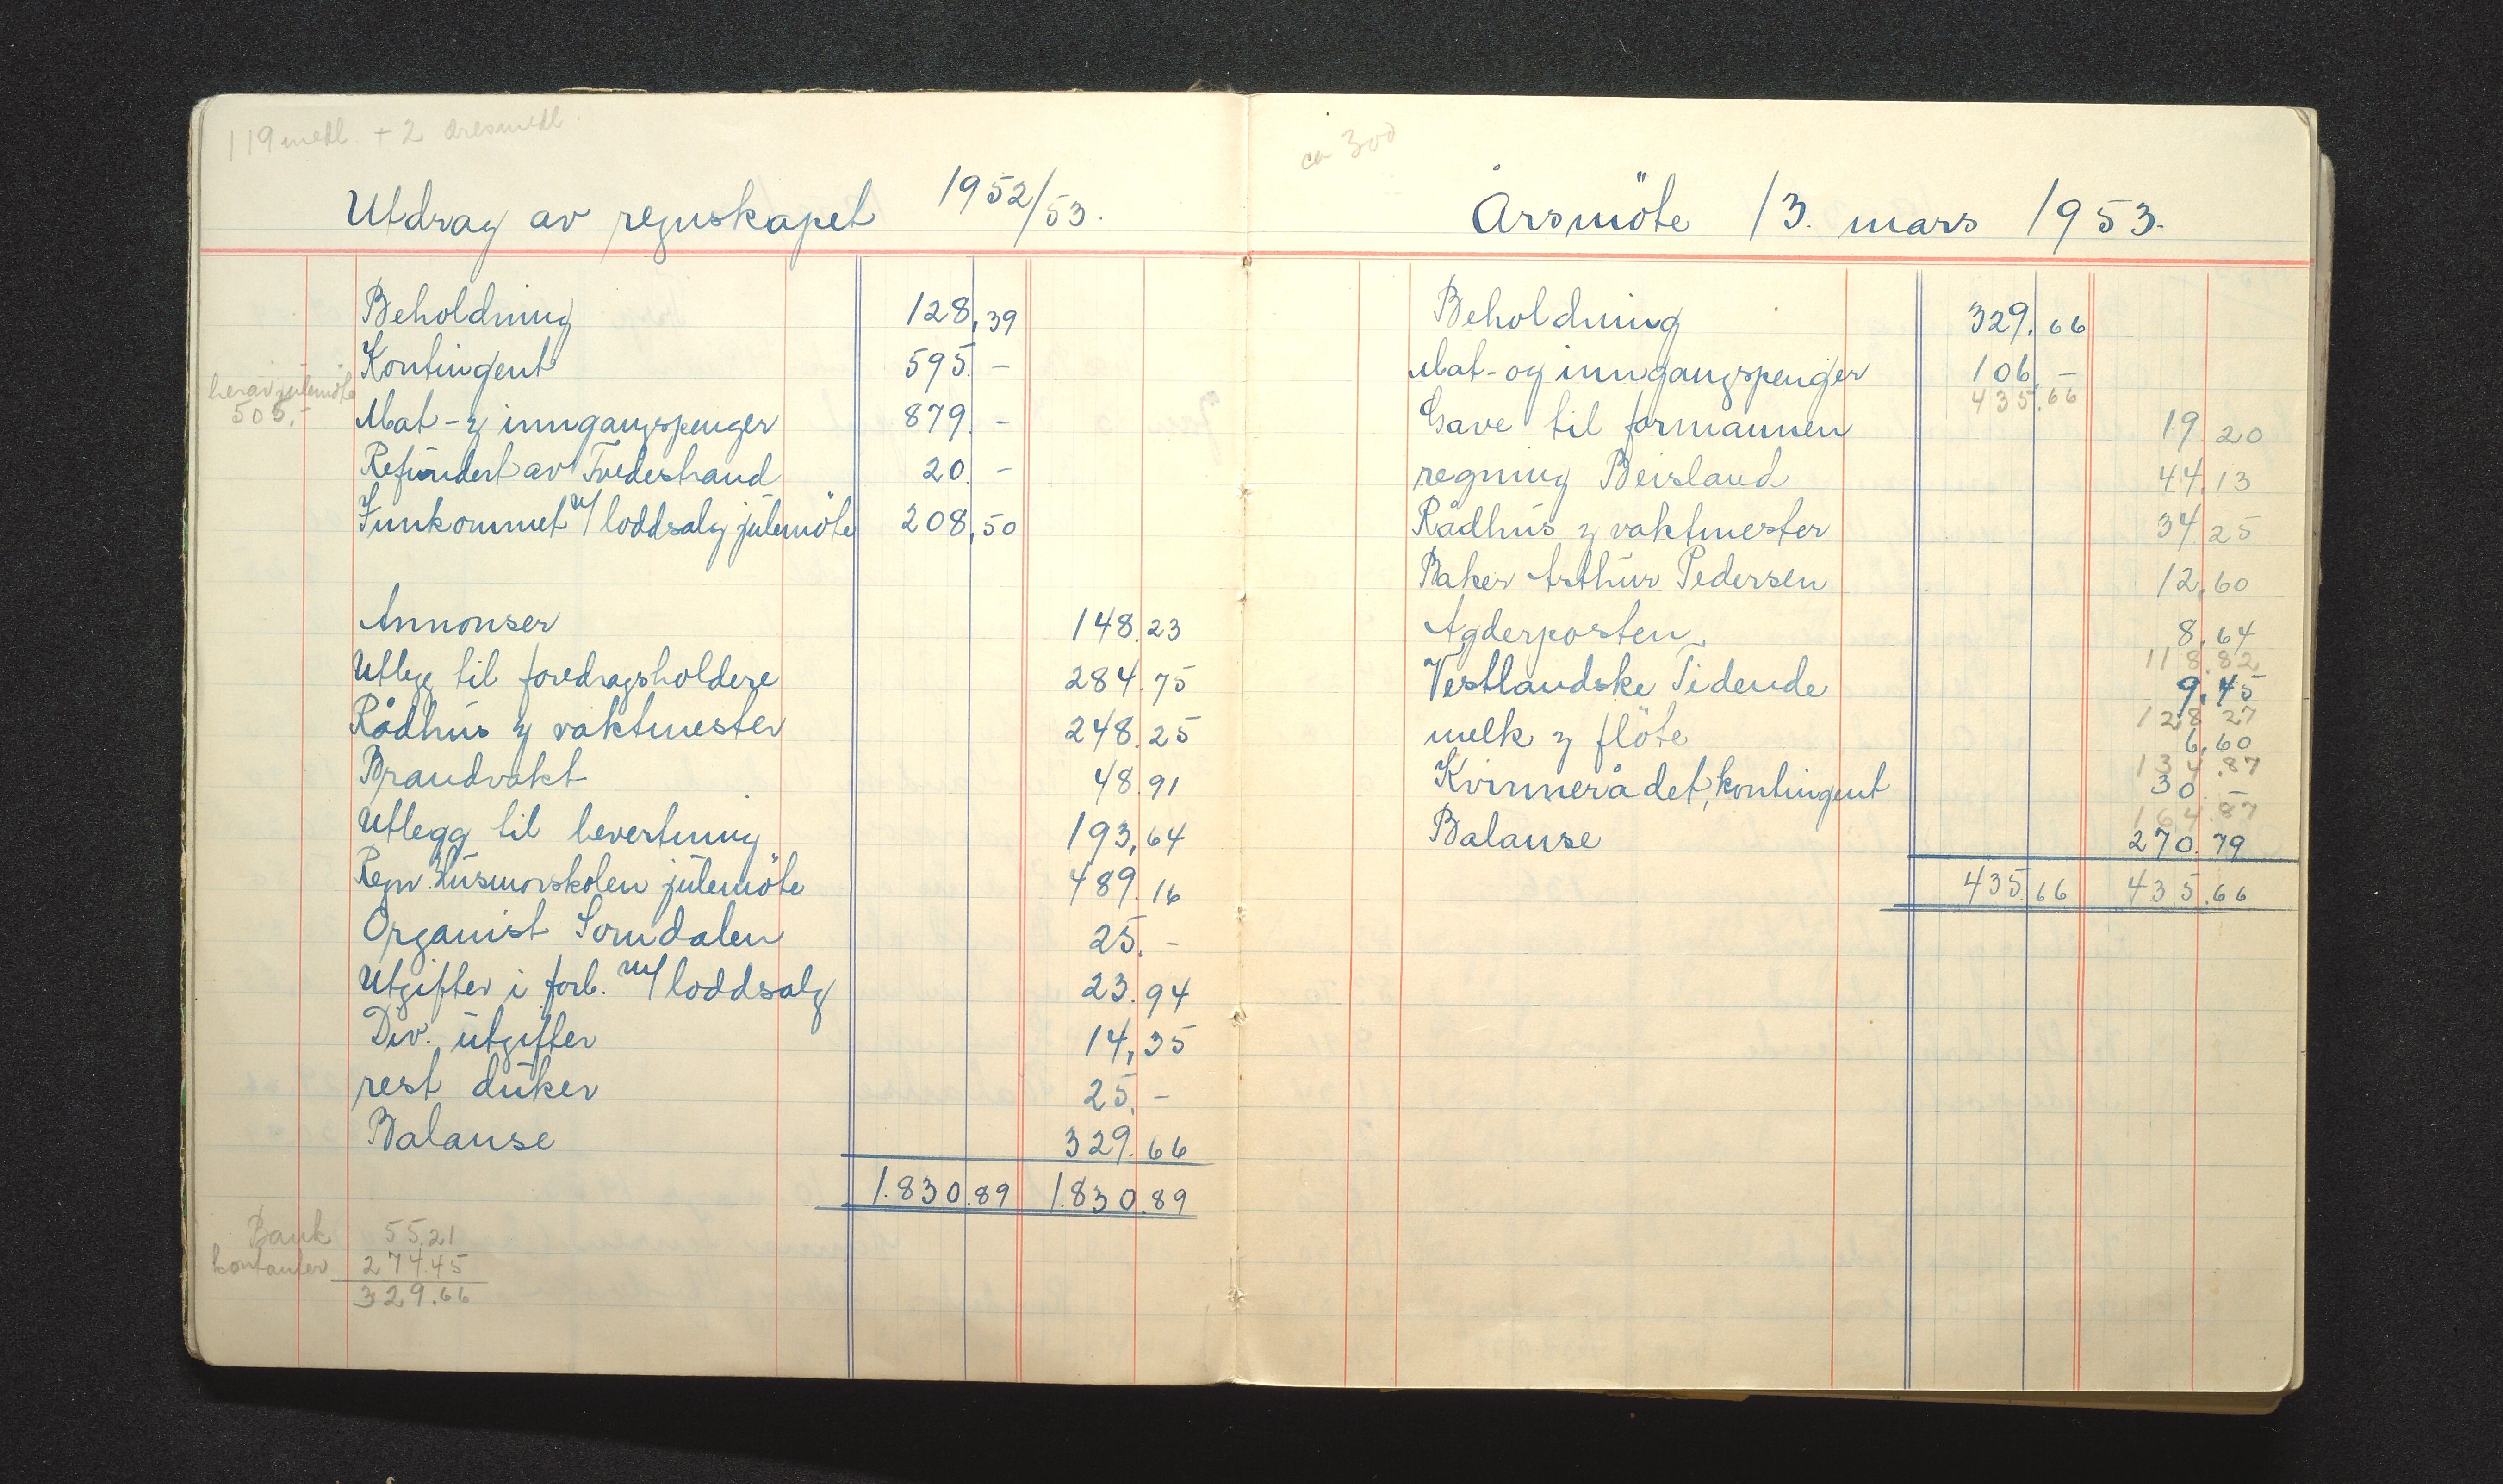 119 medl. + 2 æresmedl.
Utdrag av regnskapet 1952/53.
Beholdning 128,39
Kontingent 595.-
herav julemöte
505.-
Mat- & inngangspenger 879.-
Refundert av Tvedestrand 20.-
Innkommet v/ loddsalg julemöte 208,50
Annonser 148.23
Utlegg til foredragsholdere 284.75
Rådhus & vaktmester 248.25
Brandvakt 48.91
Utlegg til bevertning 193,64
Regn. Husmorskolen julemöte 489.16
Organist Sorndalen 25.-
Utgifter i forb. m/ loddsalg 23.94
Div. utgifter 14,35
rest duker 25.-
Balanse 329.66
1.830.89 1.830.89
Bank 55.21
kontanter 274.45
329.66
ca 300
Årsmöte 13. mars 1953.
Beholdning 329.66
Mat- og inngangspenger 106.-
435.66
Gave til formannen 19.20
regning Beisland 44.13
Rådhus & vaktmester 34.25
Baker Arthur Pedersen 12.60
Agderposten 8,64
118.82
Vestlandske Tidende 9,45
128.27
melk & flöte 6,60
134.87
Kvinnerådet, kontingent 30.-
164.87
Balanse 270.79
435.66 435.66